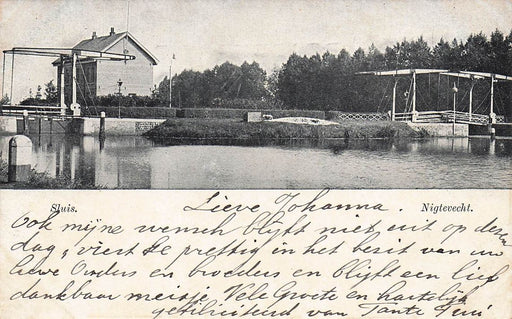 Sluis.
Nigtevecht.
Lieve Johanna.
Ook mijne wensch blijft niet uit op dezen
dag, viert ze prettig in het bezit van uw
lieve Ouders en broeders en blijft een lief
dankbaar meisje Vele Groete en hartelijk
gefiliciteerd van Tante